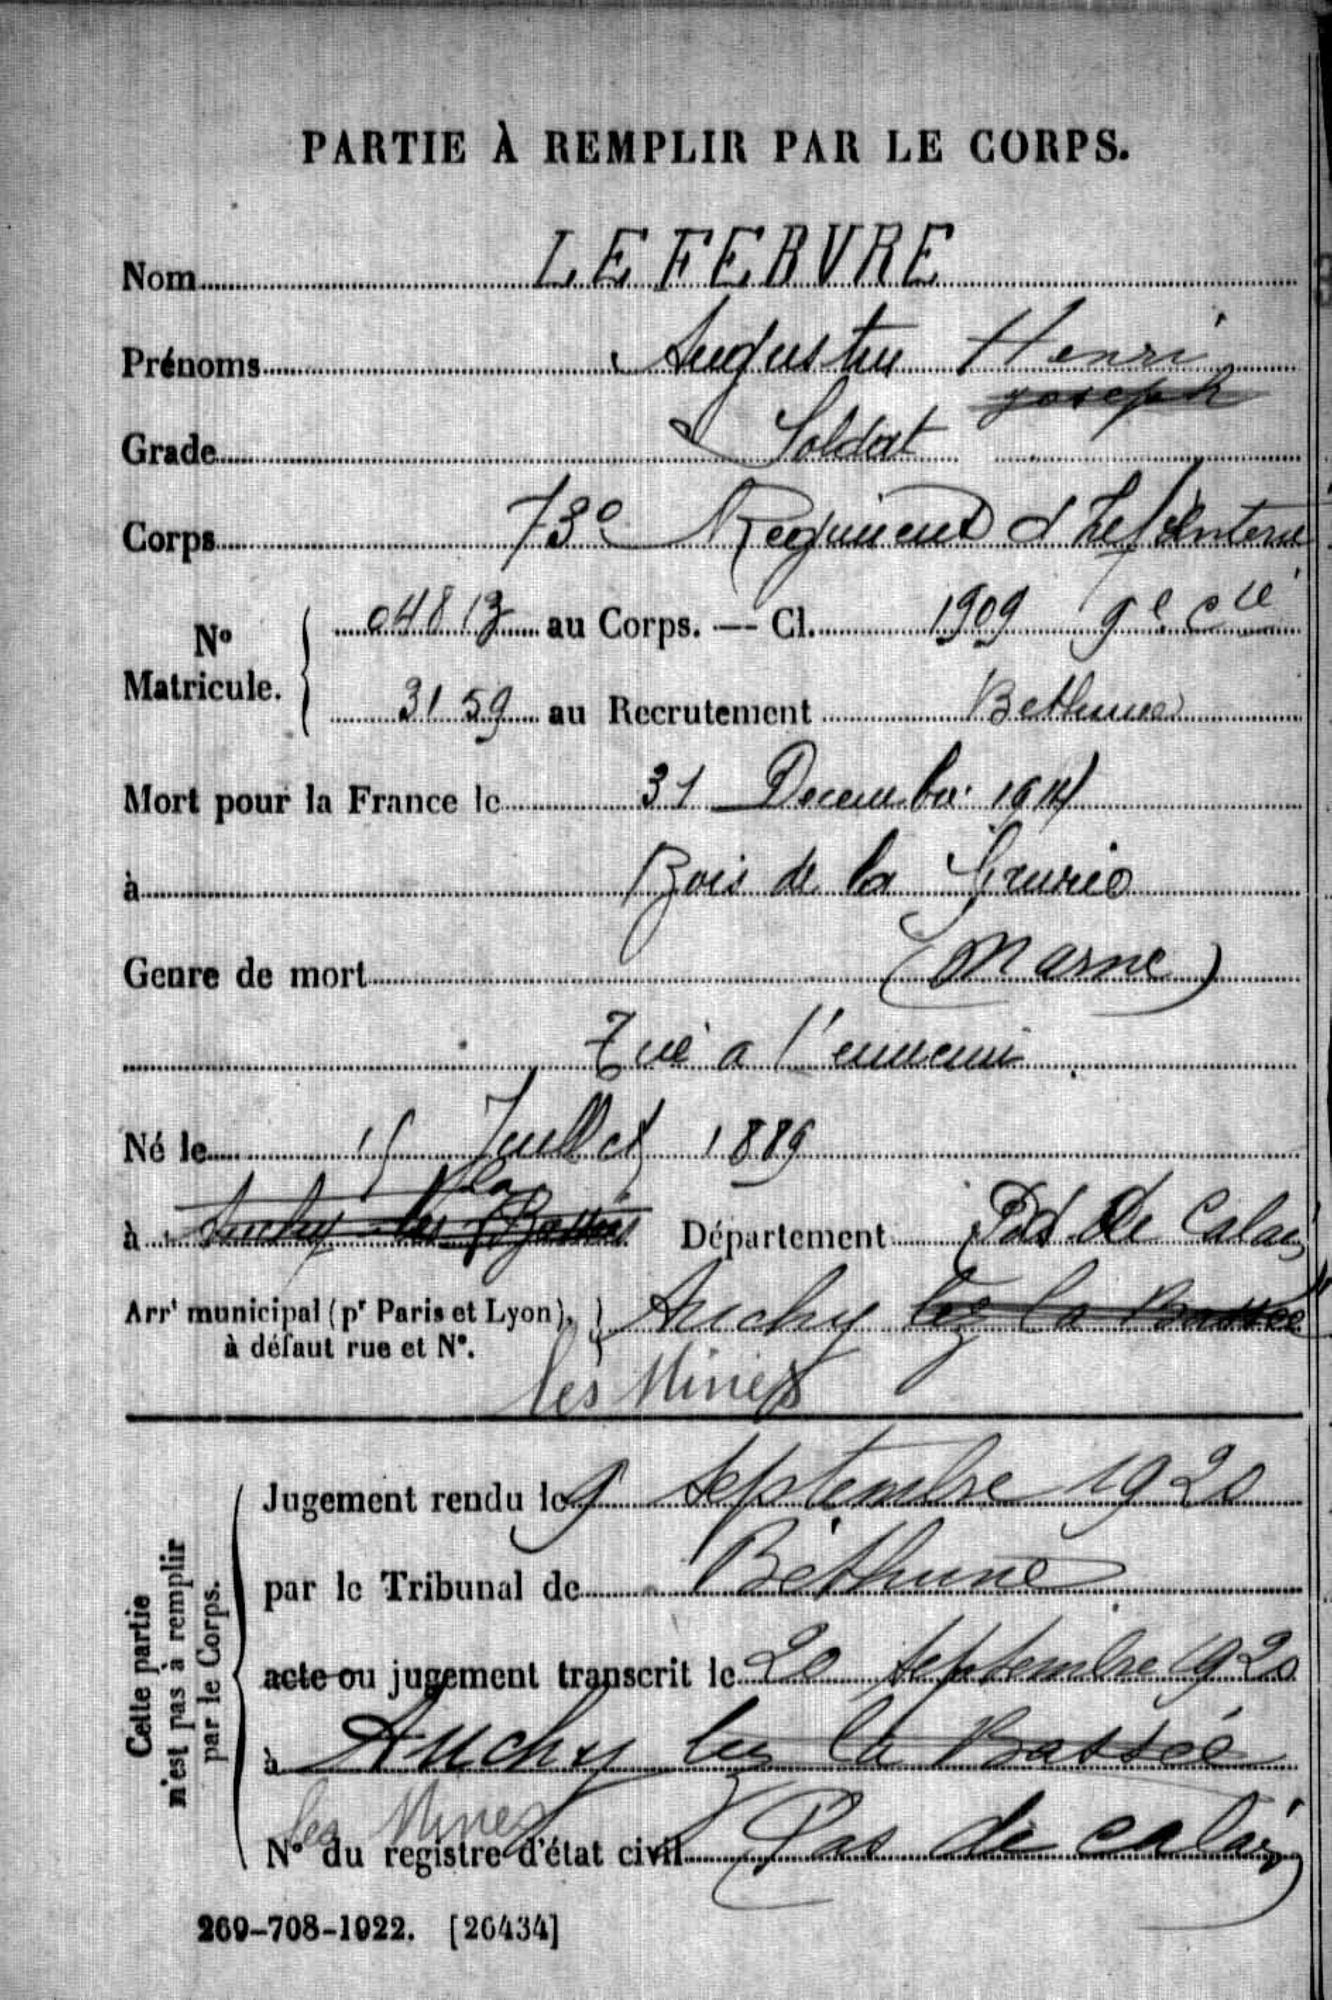 PARTIE À REMPLIR PAR LE CORPS.
Nom LEFEBVRE
Prénoms Augustin Henri
joseph
Grade Soldat
Corps 73e Regiment d'Infanterie
No Matricule. 04813 au Corps. — Cl. 1909 9e Cie
3159 au Recrutement Bethune
Mort pour la France le 31 Decembre 1914
à Bois de la Grurie
Genre de mort (Marne)
Tué a l'ennemi
Né le 15 Juillet 1889
à Auchy les la Bassée Département Pas de Calais
Arrt municipal (pr Paris et Lyon), à défaut rue et No. Auchy lez la Bassée
les Mines
Cette partie n'est pas à remplir par le Corps.
Jugement rendu le 9 septembre 1920
par le Tribunal de Béthune
acte ou jugement transcrit le 20 septembre 1920
à Auchy lez la Bassée
les Mines
No du registre d'état civil (Pas de calais)
269-708-1922. [26434]